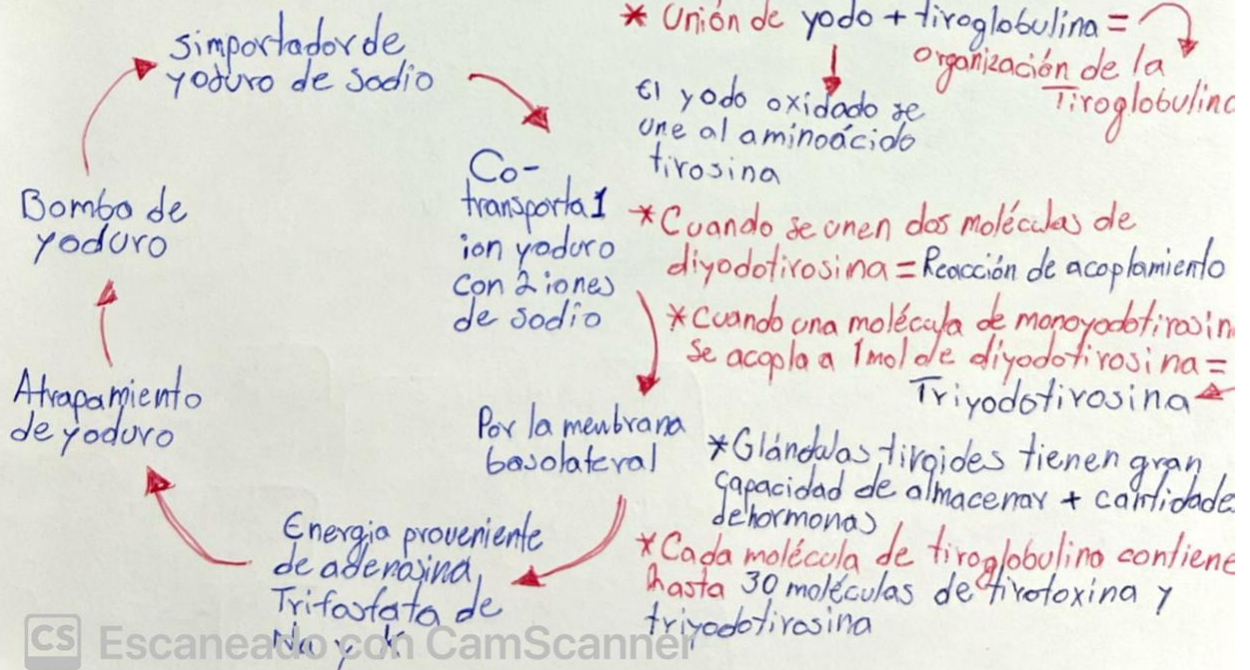 simportador de
yoduro de sodio
Co-
transporta 1
ion yoduro
con 2 iones
de sodio
Por la menbrana
basolateral
Energia proveniente
de adenosina
Trifosfato de
Na y K
Atrapamiento
de yoduro
Bomba de
yoduro
* Unión de yodo + tiroglobulina =
organización de la
Tiroglobulina
El yodo oxidado se
une al aminoácido
tirosina
* Cuando se unen dos moléculas de
diyodotirosina = Reacción de acoplamiento
* Cuando una molécula de monoyodotirosin
se acopla a 1 mol de diyodotirosina =
Triyodotirosina
* Glándulas tiroides tienen gran
capacidad de almacenar + cantidade
de hormonas
* Cada molécula de tiroglobulina contiene
hasta 30 moléculas de tirotoxina y
triyodotirosina
CS Escaneado con CamScanner